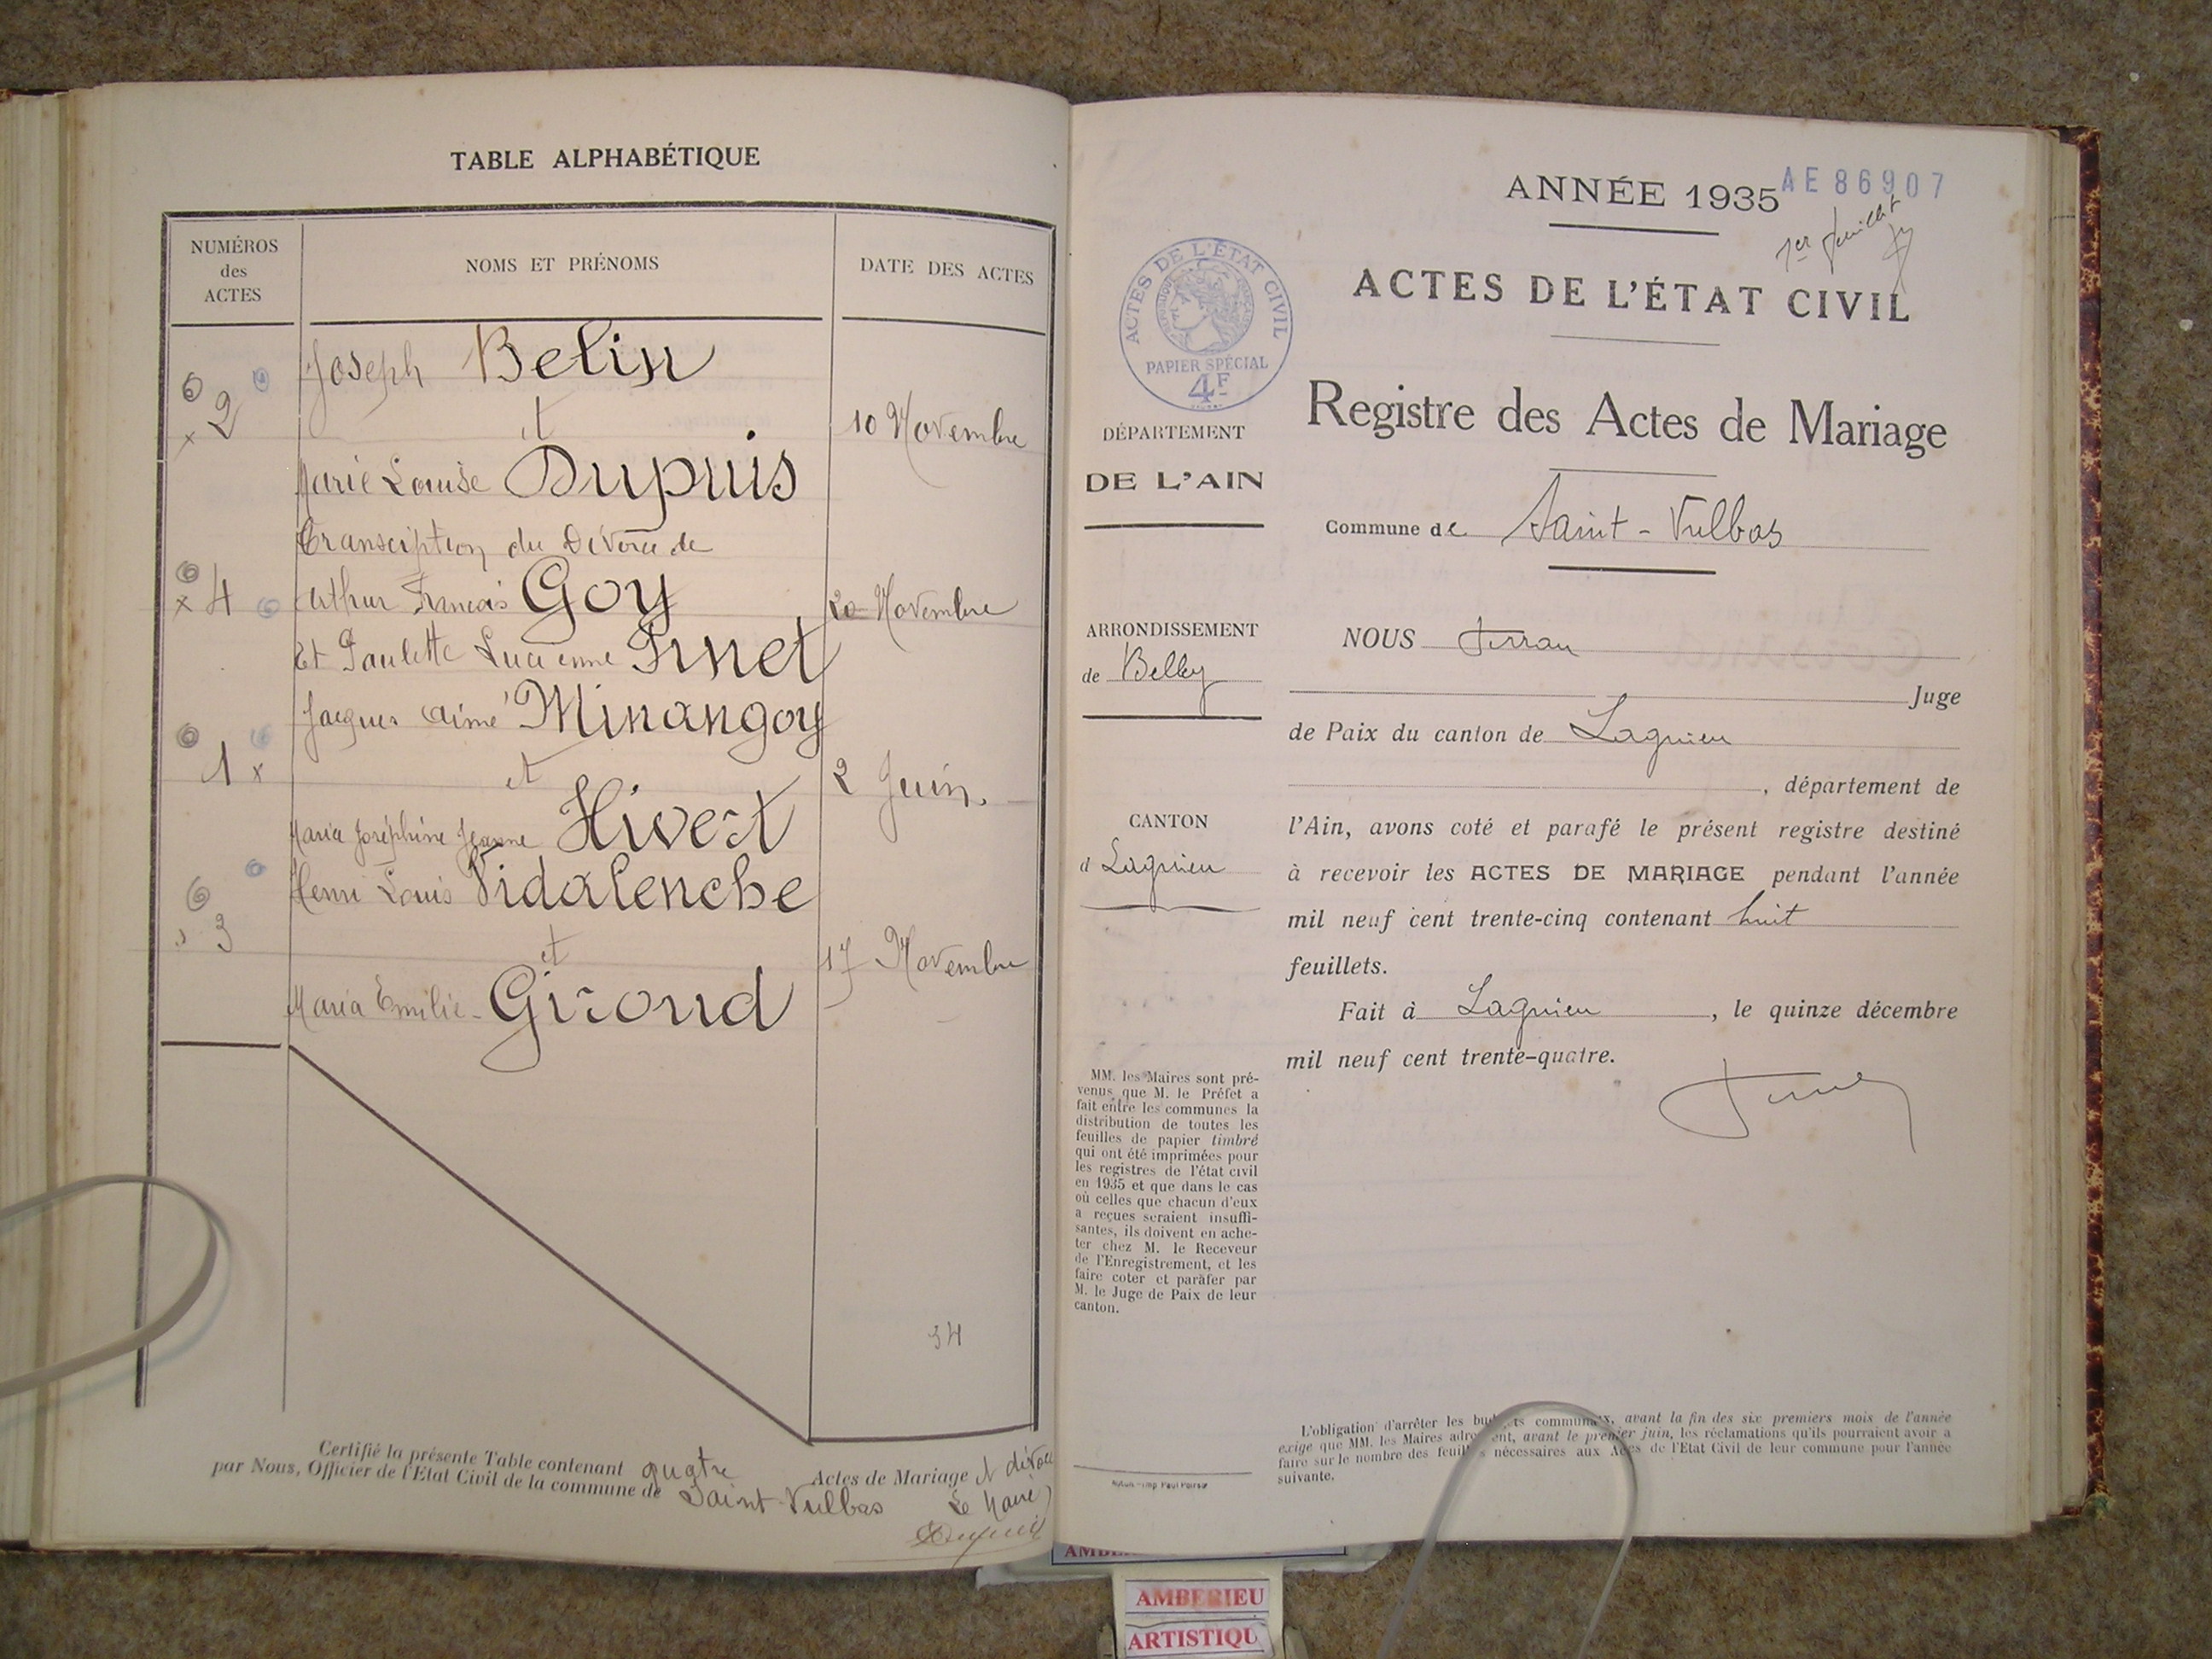 TABLE ALPHABÉTIQUE
NUMÉROS
des
ACTES
NOMS ET PRÉNOMS
DATE DES ACTES
Joseph Belin
2
et
10 Novembre
Marie Louise Dupuis
Transcription du Divorce de
4
Arthur François Goy
20 Novembre
Et Paulette Lucienne Pinet
Jacques Aimé Minangoy
1 x
et
2 Juin.
Maria Joséphine Jeanne Hivert
Henri Louis Vidalenche
3
et
17 Novembre
Maria Emilie Giroud
34
Certifié la présente Table contenant quatre Actes de Mariage et divorce
par Nous, Officier de l'État Civil de la commune de Saint-Vulbas Le Maire
Dupuis
ANNÉE 1935
AE 86907
1er feuillet
ACTES DE L'ÉTAT CIVIL
ACTES DE L'ÉTAT CIVIL
RÉPUBLIQUE FRANÇAISE
PAPIER SPÉCIAL
4F
Registre des Actes de Mariage
DÉPARTEMENT
DE L'AIN
Commune de Saint-Vulbas
ARRONDISSEMENT
de Belley
CANTON
d Lagnieu
NOUS
Juge
de Paix du canton de Lagnieu
, département de
l'Ain, avons coté et parafé le présent registre destiné
à recevoir les ACTES DE MARIAGE pendant l'année
mil neuf cent trente-cinq contenant huit
feuillets.
Fait à Lagnieu, le quinze décembre
mil neuf cent trente-quatre.
MM. les Maires sont pré-
venus que M. le Préfet a
fait entre les communes la
distribution de toutes les
feuilles de papier timbré
qui ont été imprimées pour
les registres de l'état civil
en 1935 et que dans le cas
où celles que chacun d'eux
a reçues seraient insuffi-
santes, ils doivent en ache-
ter chez M. le Receveur
de l'Enregistrement, et les
faire coter et parafer par
M. le Juge de Paix de leur
canton.
L'obligation d'arrêter les budgets communaux, avant la fin des six premiers mois de l'année
exige que MM. les Maires adressent, avant le premier juin, les réclamations qu'ils pourraient avoir à
faire sur le nombre des feuilles nécessaires aux Actes de l'État Civil de leur commune pour l'année
suivante.
AMBERIEU
ARTISTIQU